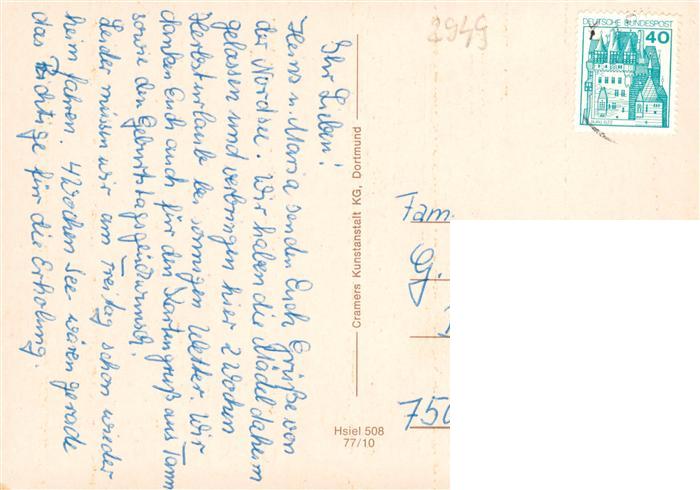 Ihr Lieben!
Heinz u. Maria senden Euch Grüße von
der Nordsee. Wir haben die Mädel daheim
gelassen und verbringen hier 2 Wochen
Herbsturlaub bei sonnigem Wetter. Wir
danken Euch auch für den Kartengruß aus Tamm
sowie den Geburtstagsglückwunsch.
Leider müssen wir am Freitag schon wieder
heim fahren. 4 Wochen See wären gerade
das Richtige für die Erholung.
Cramers Kunstanstalt KG, Dortmund
Hsiel 508
77/10
2949
DEUTSCHE BUNDESPOST
40
BURG ELTZ
Fam.
G.
750